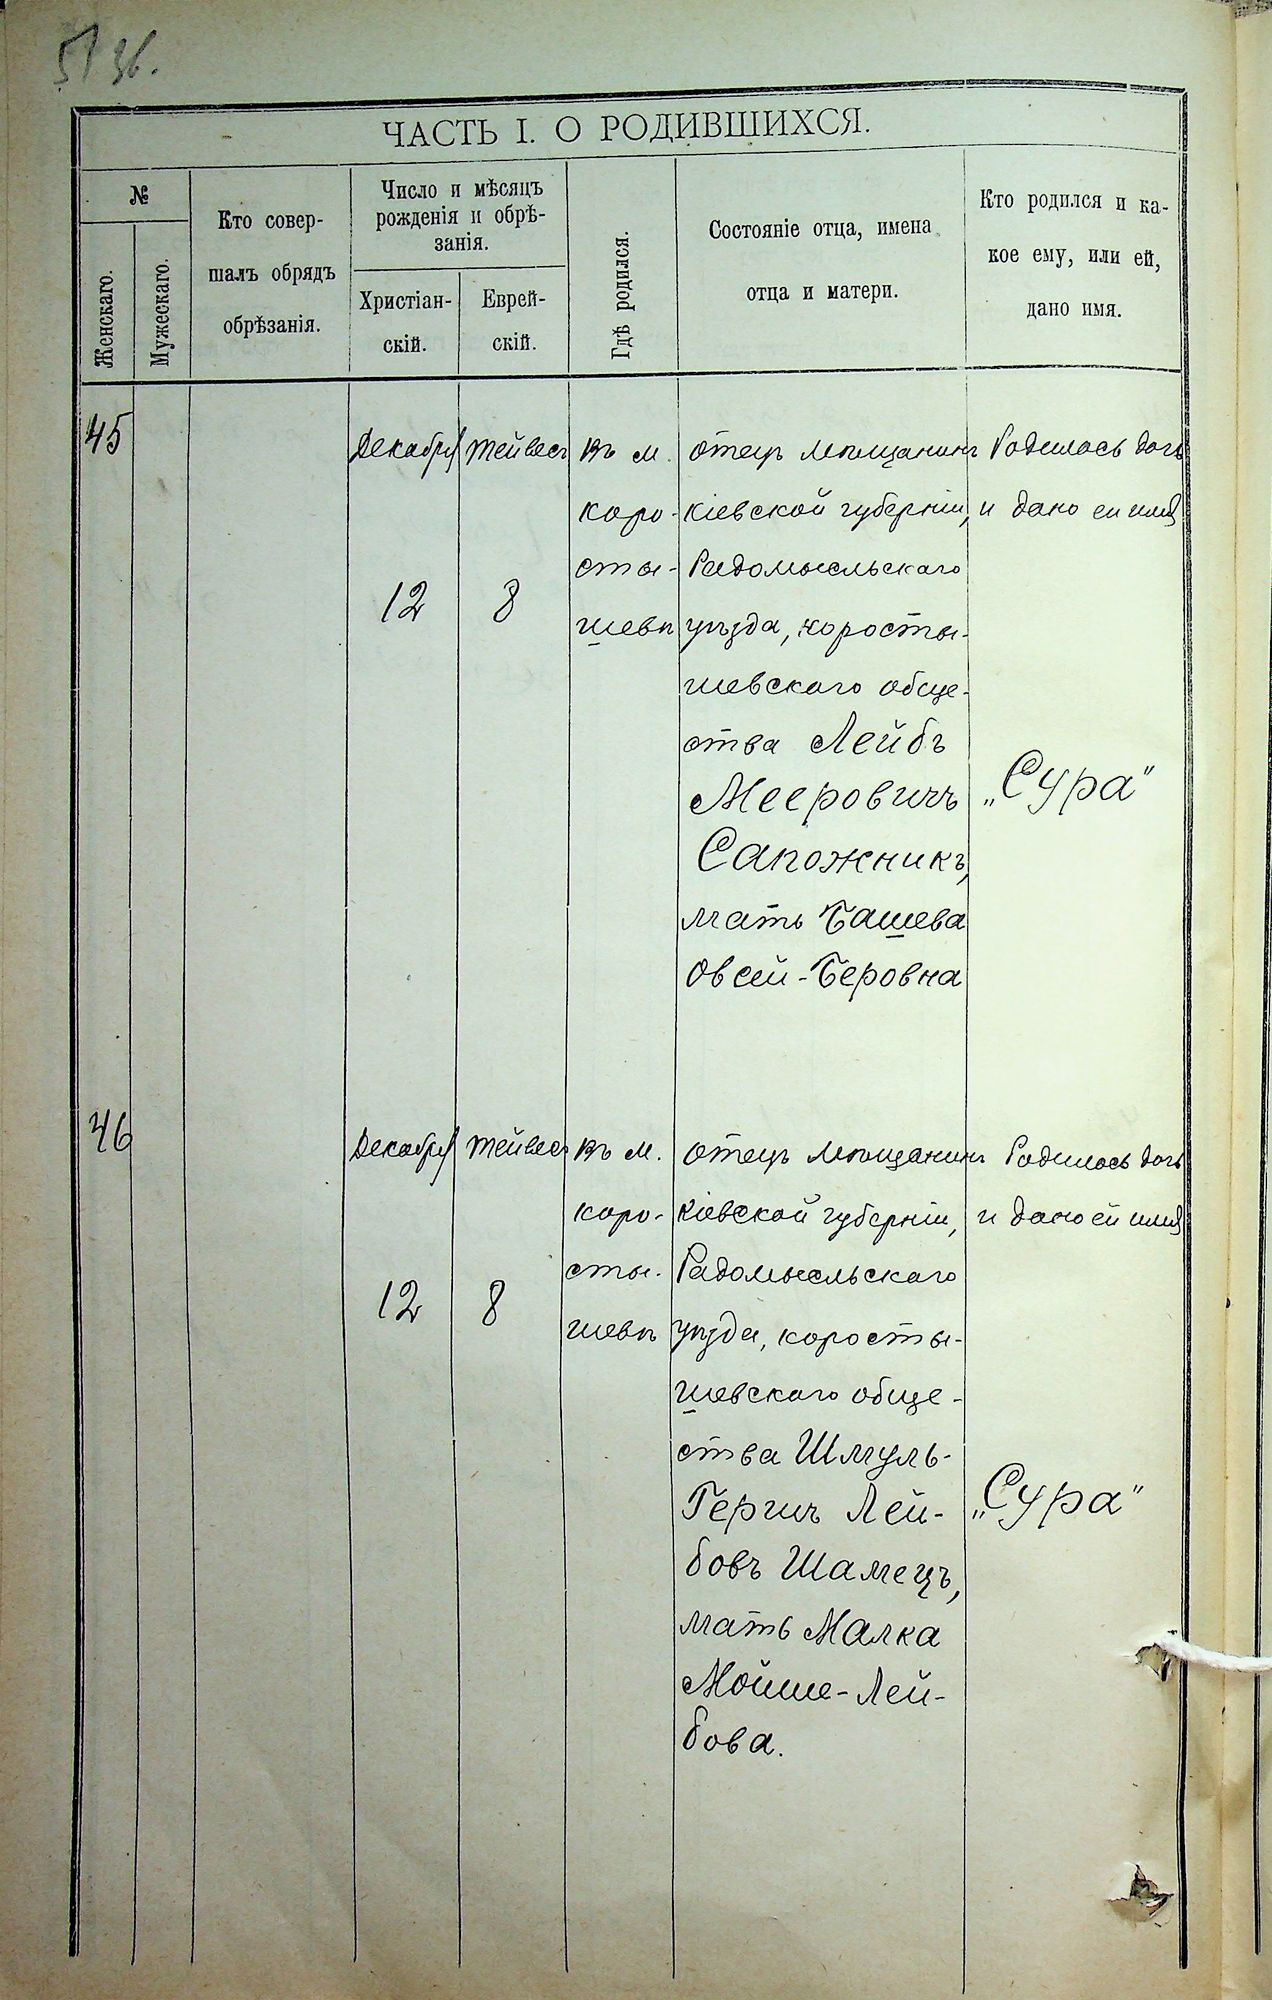 51 36.
ЧАСТЬ I. О РОДИВШИХСЯ.
№
Женскаго.
Мужескаго.
Кто совер-
шалъ обрядъ
обрѣзанія.
Число и мѣсяцъ
рожденія и обрѣ-
занія.
Христіан-
скій.
Еврей-
скій.
Гдѣ родился.
Состояніе отца, имена
отца и матери.
Кто родился и ка-
кое ему, или ей,
дано имя.
45
Декабря
12
Тейвесъ
8
Въ м.
Коро-
сты-
шевѣ
Отецъ мѣщанинъ
Кіевской губерніи,
Радомысльскаго
уѣзда, коросты-
шевскаго обще-
ства Лейбъ
Мееровичъ
Сапожникъ,
мать Башева
Овсей-Беровна
Родилась дочь
и дано ей имя
„Сура"
46
Декабря
12
Тейвесъ
8
Въ м.
Коро-
сты-
шевѣ
Отецъ мѣщанинъ
Кіевской губерніи,
Радомысльскаго
уѣзда, коросты-
шевскаго обще-
ства Шмуль-
Гершъ Лей-
бовъ Шамецъ,
мать Малка
Мойше-Лей-
бова.
Родилась дочь
и дано ей имя
„Сура"